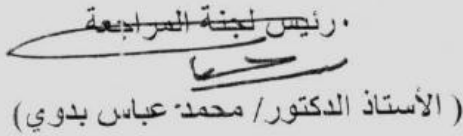 رئيس لجنة المراجعة
( الأستاذ الدكتور/ محمد عباس بدوي)